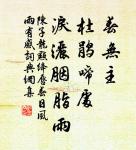 春無主
杜鵑啼處
淚灑胭脂雨
陳子龍點絳唇春日風
雨有感詞與網集